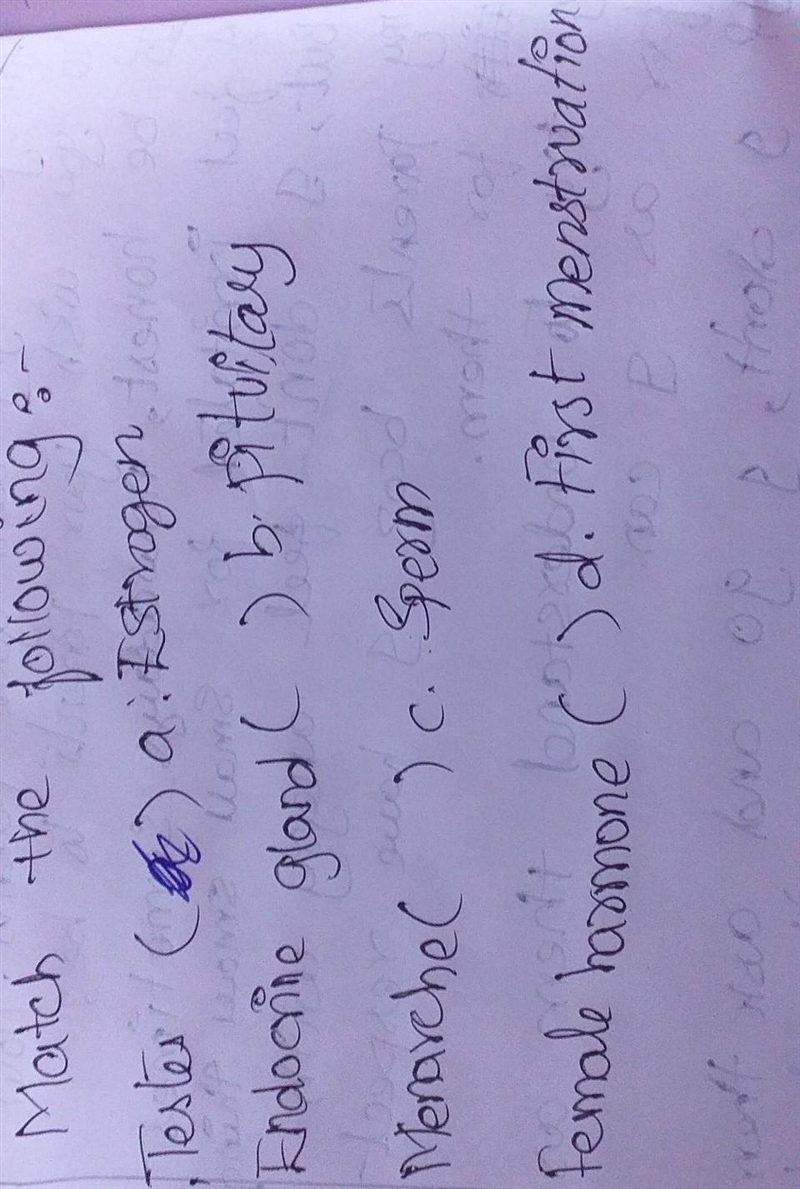 Match the following :-
Testes ( ) a. Estrogen
Endocrine gland ( ) b. pituitary
Menarche ( ) c. Sperm
Female harmone ( ) d. First menstruation